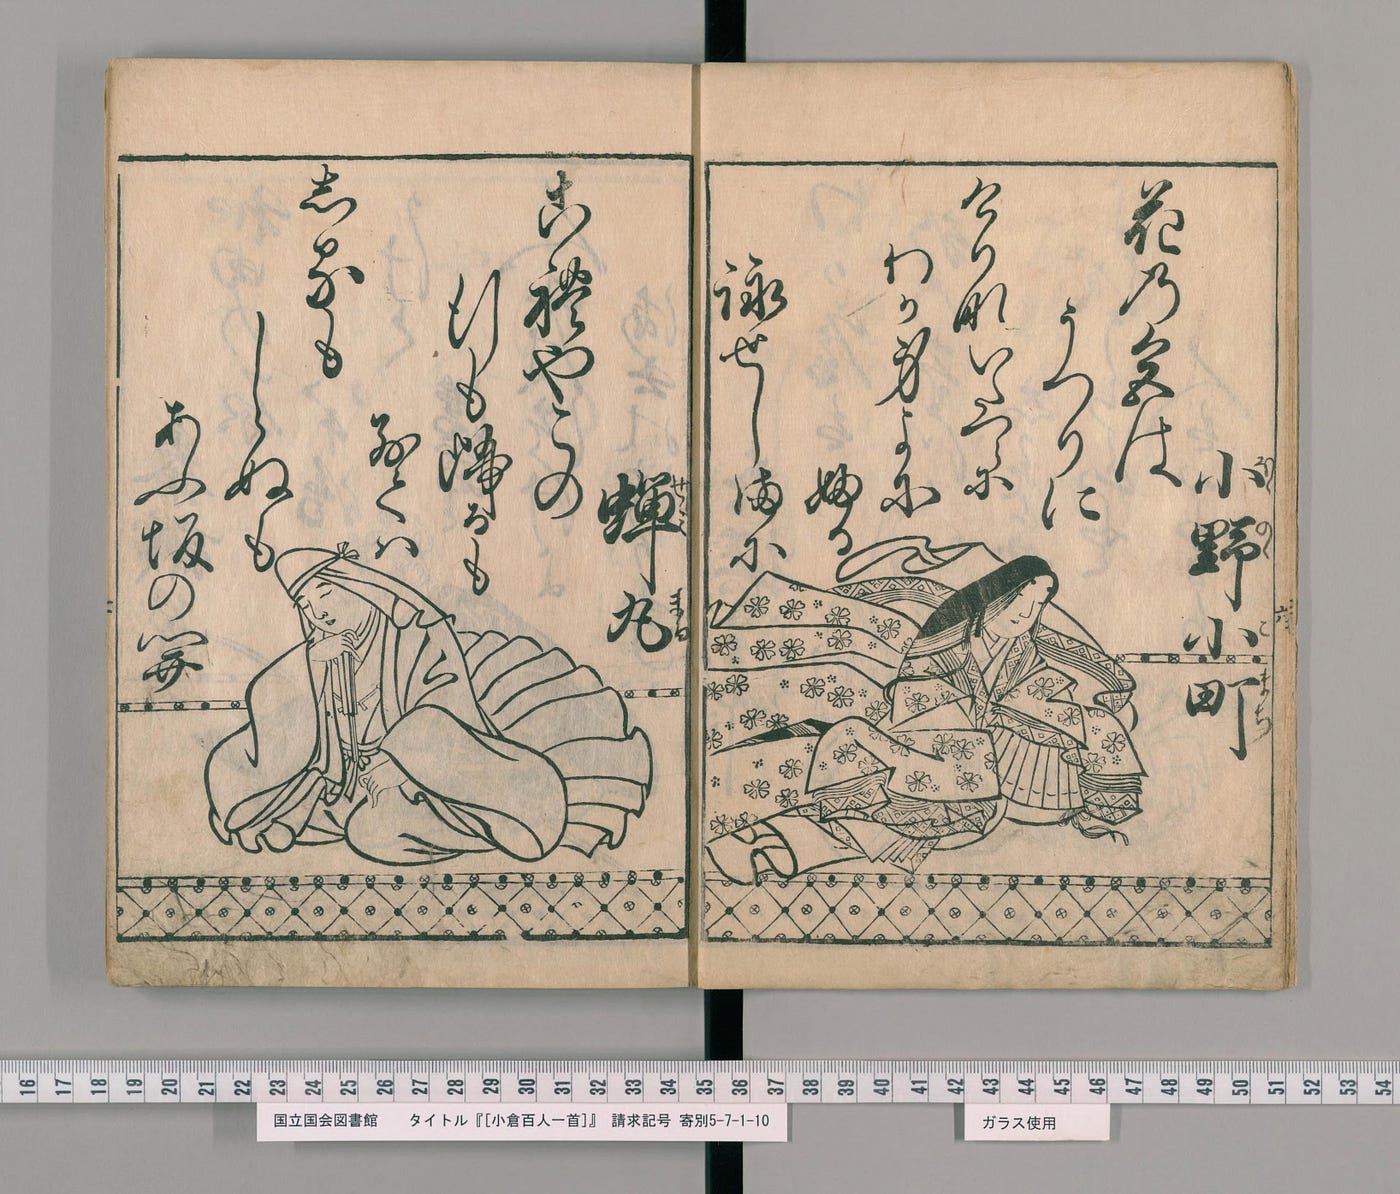 小野小町
をのゝ こまち
花乃色は
うつりに
けりないたつらに
わか身よに
ふる
詠せしまに
蝉丸
せみ まる
これやこの
行も帰るも
別てハ
しるも
しらぬも
あふ坂の関
16 17 18 19 20 21 22 23 24 25 26 27 28 29 30 31 32 33 34 35 36 37 38 39 40 41 42 43 44 45 46 47 48 49 50 51 52 53 54
国立国会図書館 タイトル『[小倉百人一首]』 請求記号 寄別5-7-1-10
ガラス使用